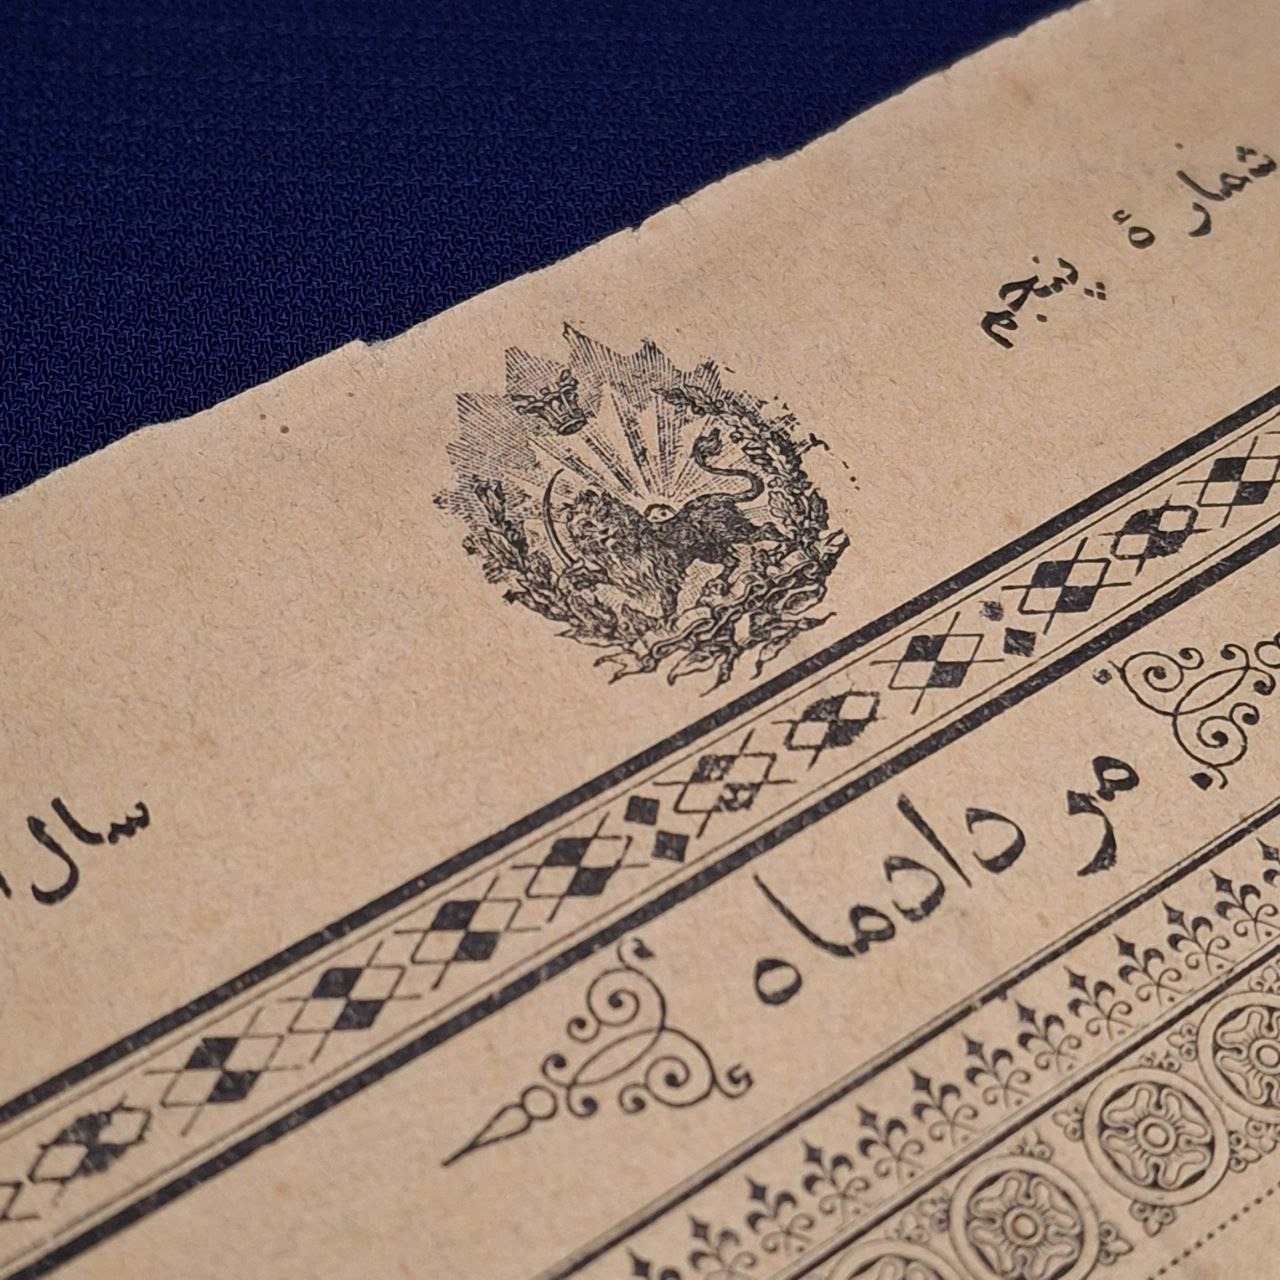 شماره
پنج
سال
مردادماه